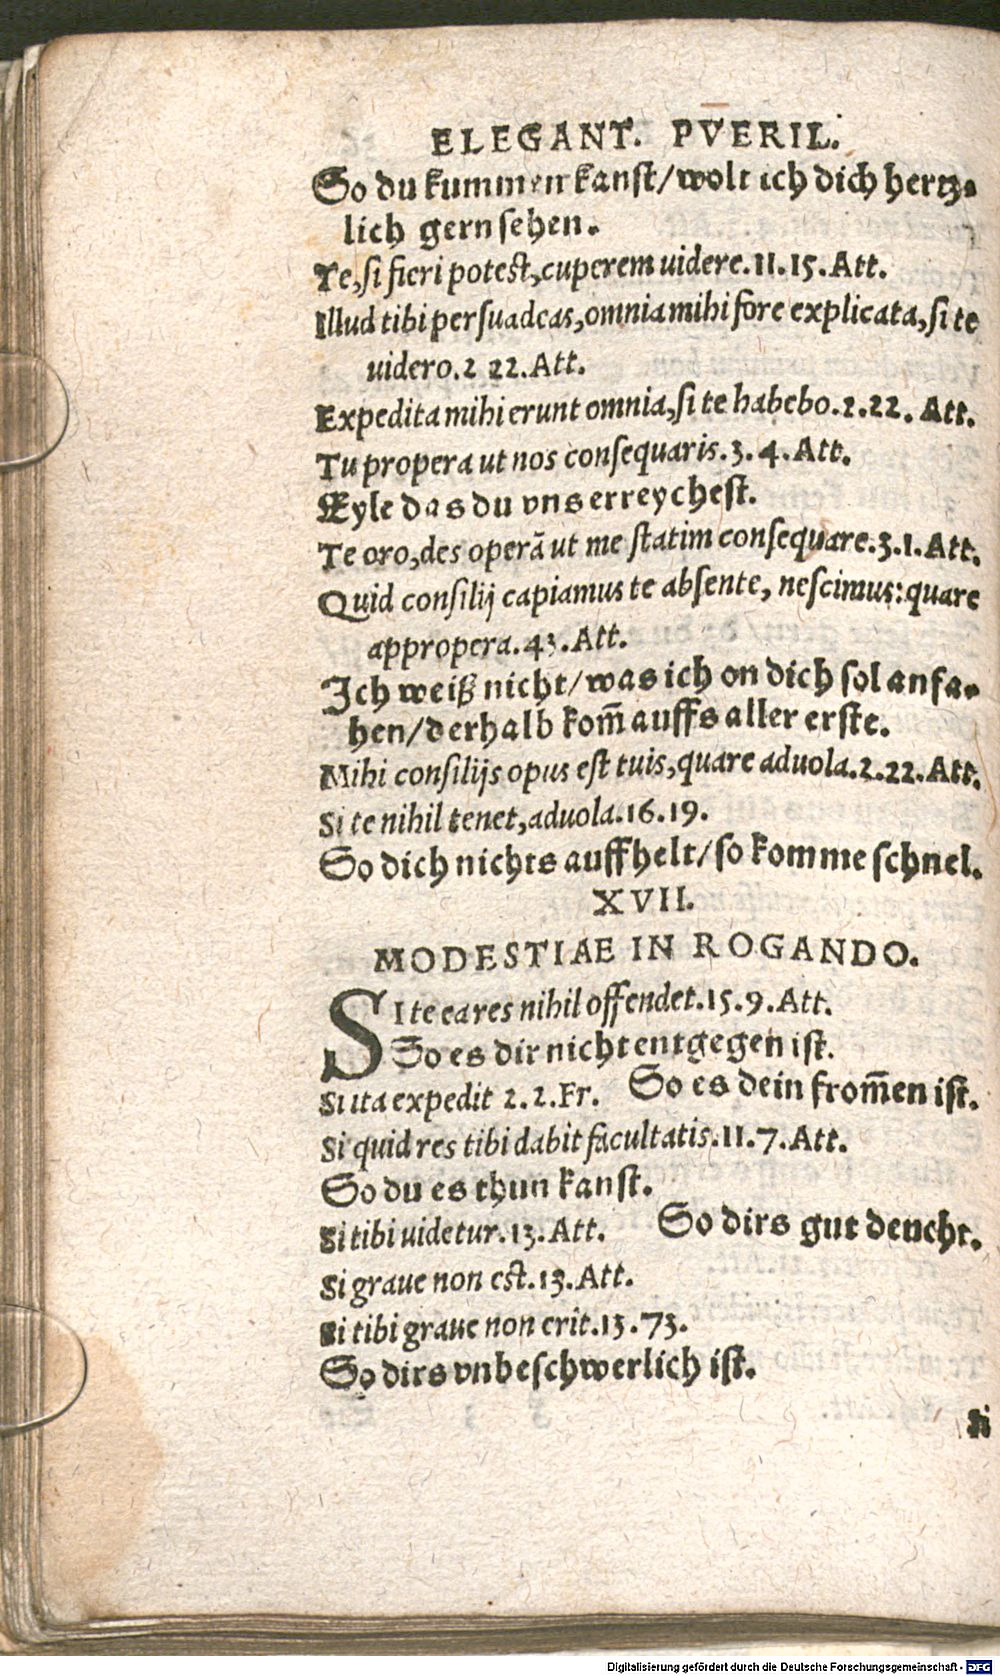 ELEGANT. PVERIL.
So du kummen kanst/wolt ich dich hertz-
lich gern sehen.
Te, si fieri potest, cuperem uidere. 11. 15. Att.
Illud tibi persuadeas, omnia mihi fore explicata, si te
uidero. 2 22. Att.
Expedita mihi erunt omnia, si te habebo. 2. 22. Att.
Tu propera ut nos consequaris. 3. 4. Att.
Eyle das du vns erreychest.
Te oro, des operā ut me statim consequare. 3. 1. Att.
Quid consilij capiamus te absente, nescimus: quare
appropera. 43. Att.
Ich weiß nicht/was ich on dich sol anfa-
hen/derhalb kom̄ auffs aller erste.
Mihi consilijs opus est tuis, quare aduola. 2. 22. Att.
Si te nihil tenet, aduola. 16. 19.
So dich nichts auffhelt/so komme schnel.
XVII.
MODESTIAE IN ROGANDO.
SI te ea res nihil offendet. 15. 9. Att.
So es dir nicht entgegen ist.
Si ita expedit 2. 2. Fr. So es dein from̄en ist.
Si quid res tibi dabit facultatis. 11. 7. Att.
So du es thun kanst.
Si tibi uidetur. 13. Att. So dirs gut deucht.
Si graue non est. 13. Att.
Si tibi graue non erit. 13. 73.
So dirs vnbeschwerlich ist.
Si
Digitalisierung gefördert durch die Deutsche Forschungsgemeinschaft - DFG